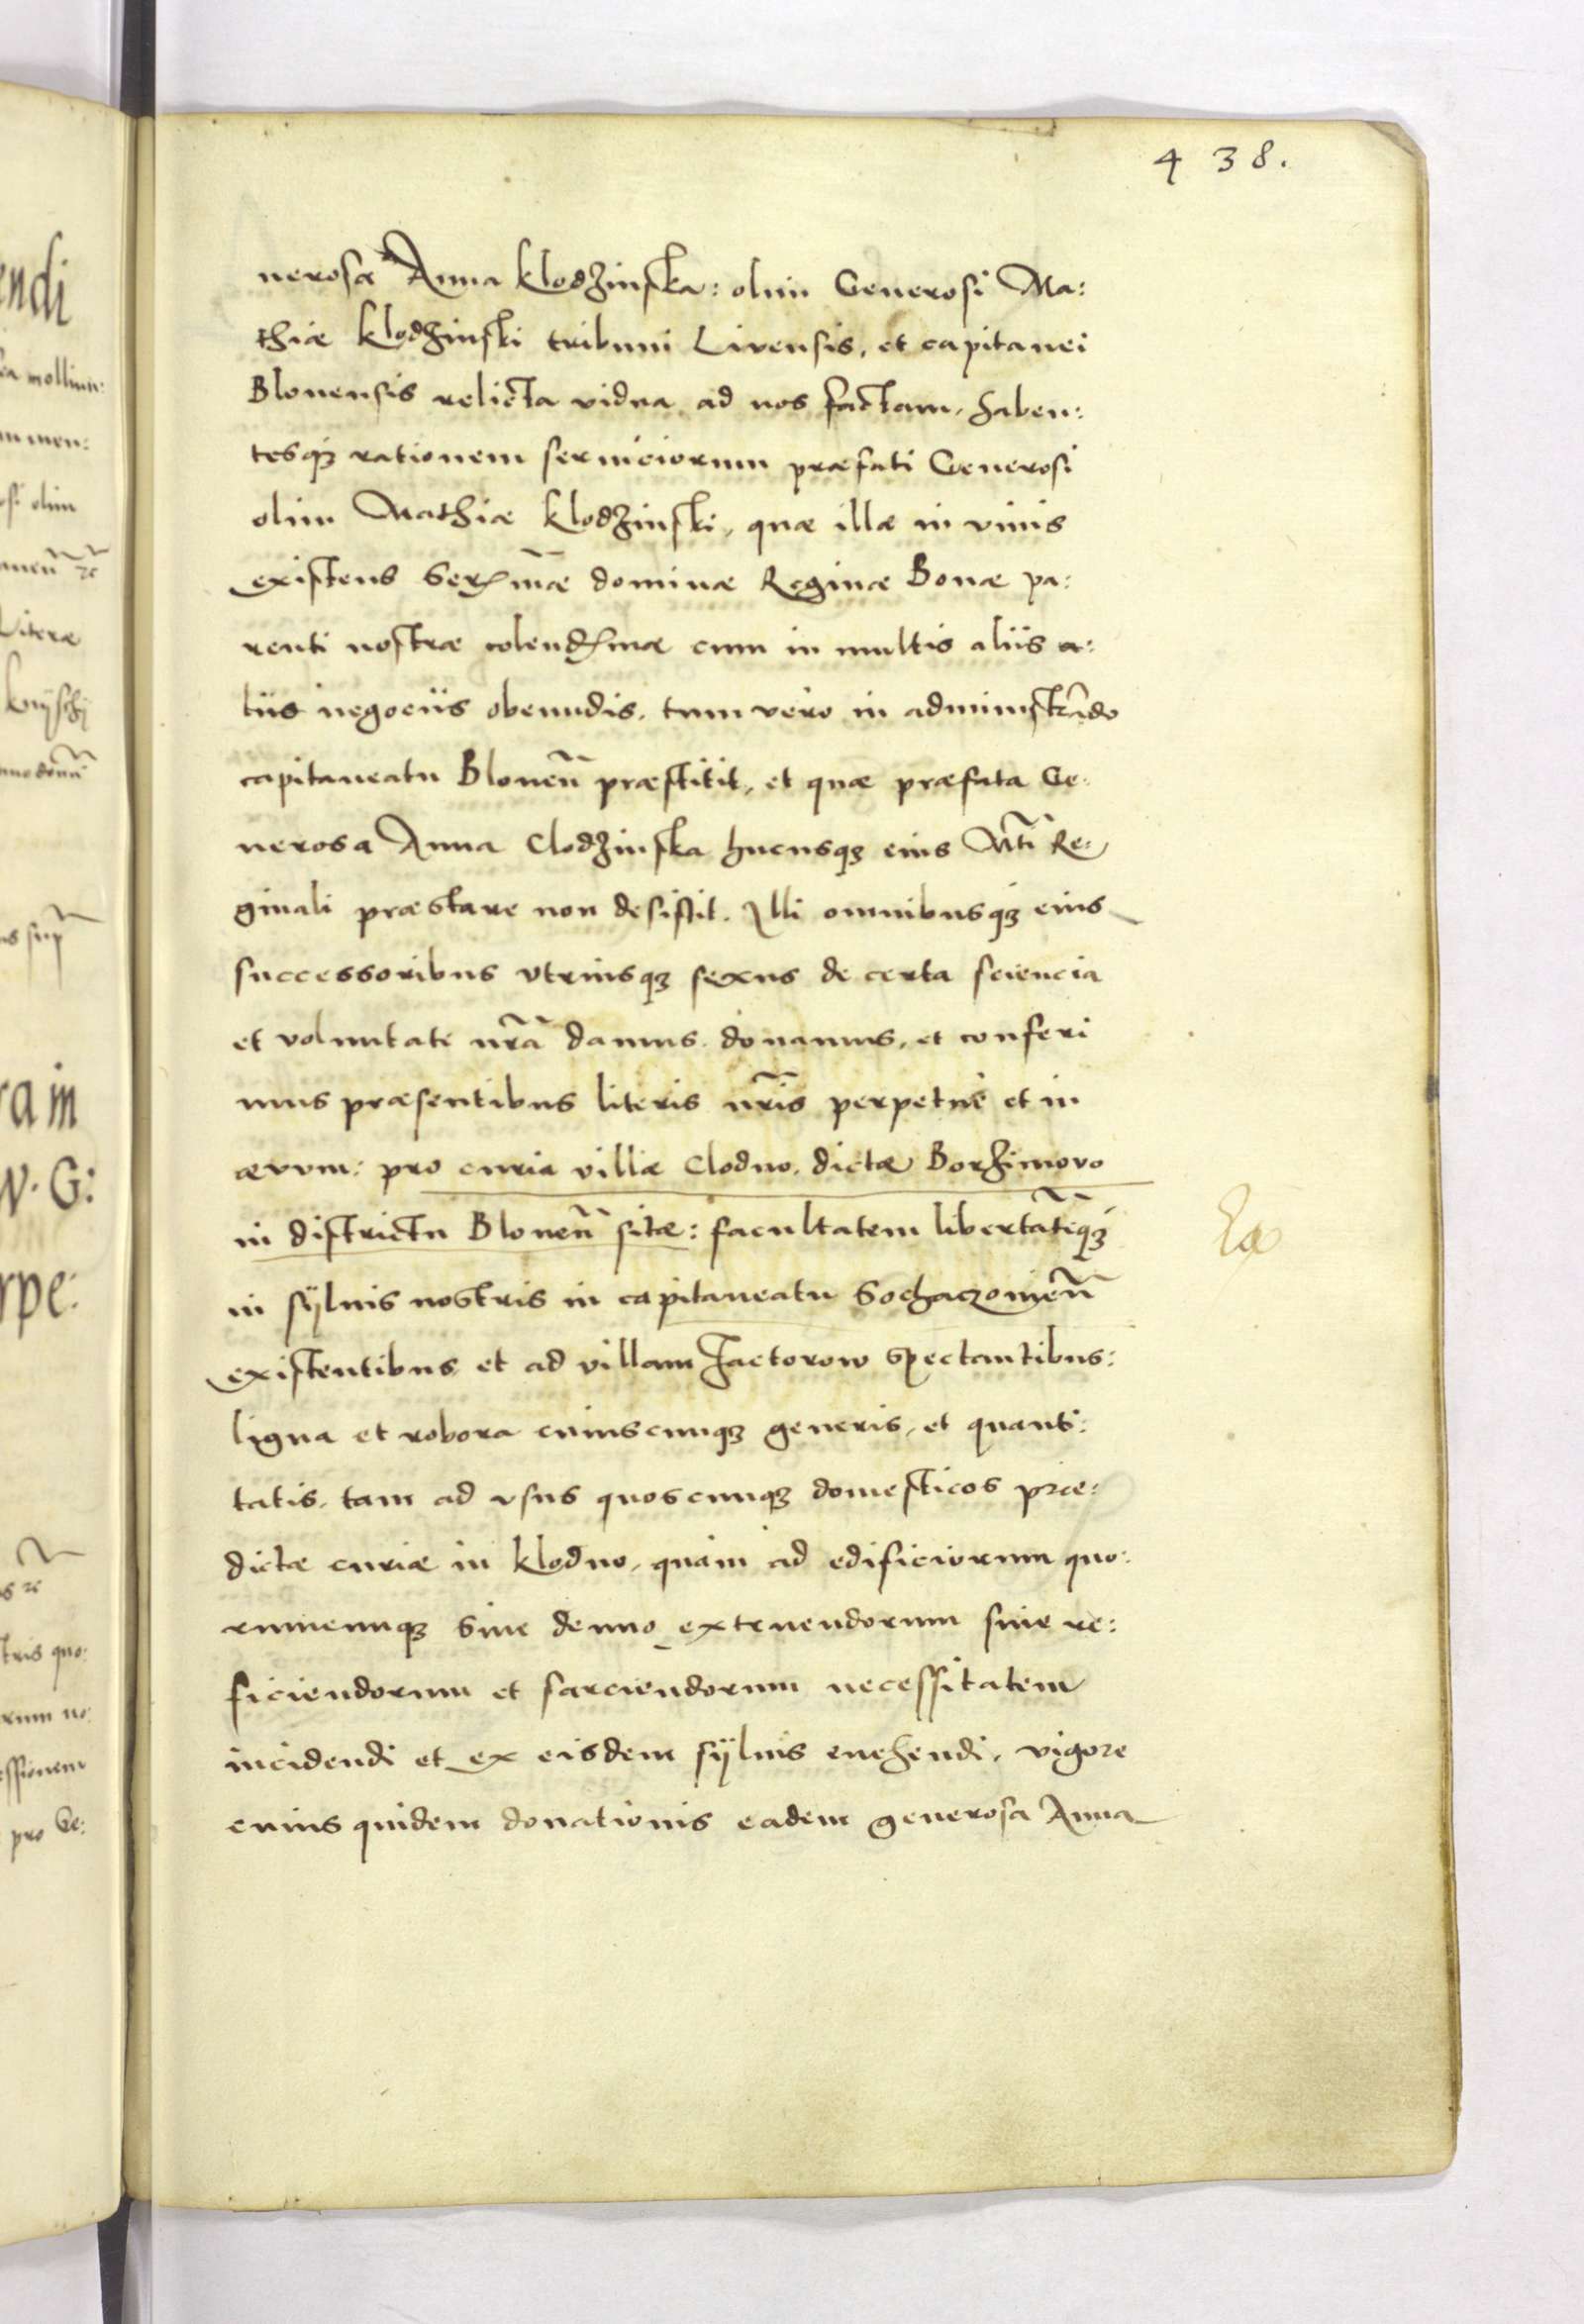 438.
nerosæ Anna Klodzinska: olim Generosi Ma:
thiæ Klodzinski tribuni Livensis, et capitanei
Blonensis relicta vidua ad nos factam, haben:
tesq3 rationem seruiciorum præfati Generosi
olim Mathiæ Klodzinski, quæ illæ in viuis
existens Ser. m̄æ dominæ Reginæ Bonæ pa:
renti nostræ colend. mæ cum in multis aliis a:
liis negociis obeundis, tum vero in administrādo
capitaneatu Blonen̄ præstitit, et quæ præfata Ge
nerosa Anna Clodzinska hucusq3 eius Mti Re:
ginali præstare non desistit. Illi omnibusq3 eius
successoribus vtriusq3 sexus de certa sciencia
et voluntate nr̄a damus, donamus, et conferi
mus præsentibus literis nr̄is perpetuè et in
ævum: pro curia villæ Clodno, dictæ Borzimovo
in districtu Blonen̄ sitæ: facultatem libertatēq3
in sÿluis nostris in capitaneatu Sochaczouien̄
existentibus et ad villam Jactorow spectantibus:
ligna et robora cuiuscunq3 generis, et quanti:
tatis, tam ad vsus quoscunq3 domesticos præ:
dictæ curiæ in Klodno, quam ad edificiorum quo:
rumcunq3 siue denuo extruendorum siue re:
ficiendorum et sarciendorum necessitatem
incidendi et ex eisdem sÿluis euehendi, vigore
cuius quidem donationis eadem generosa Anna